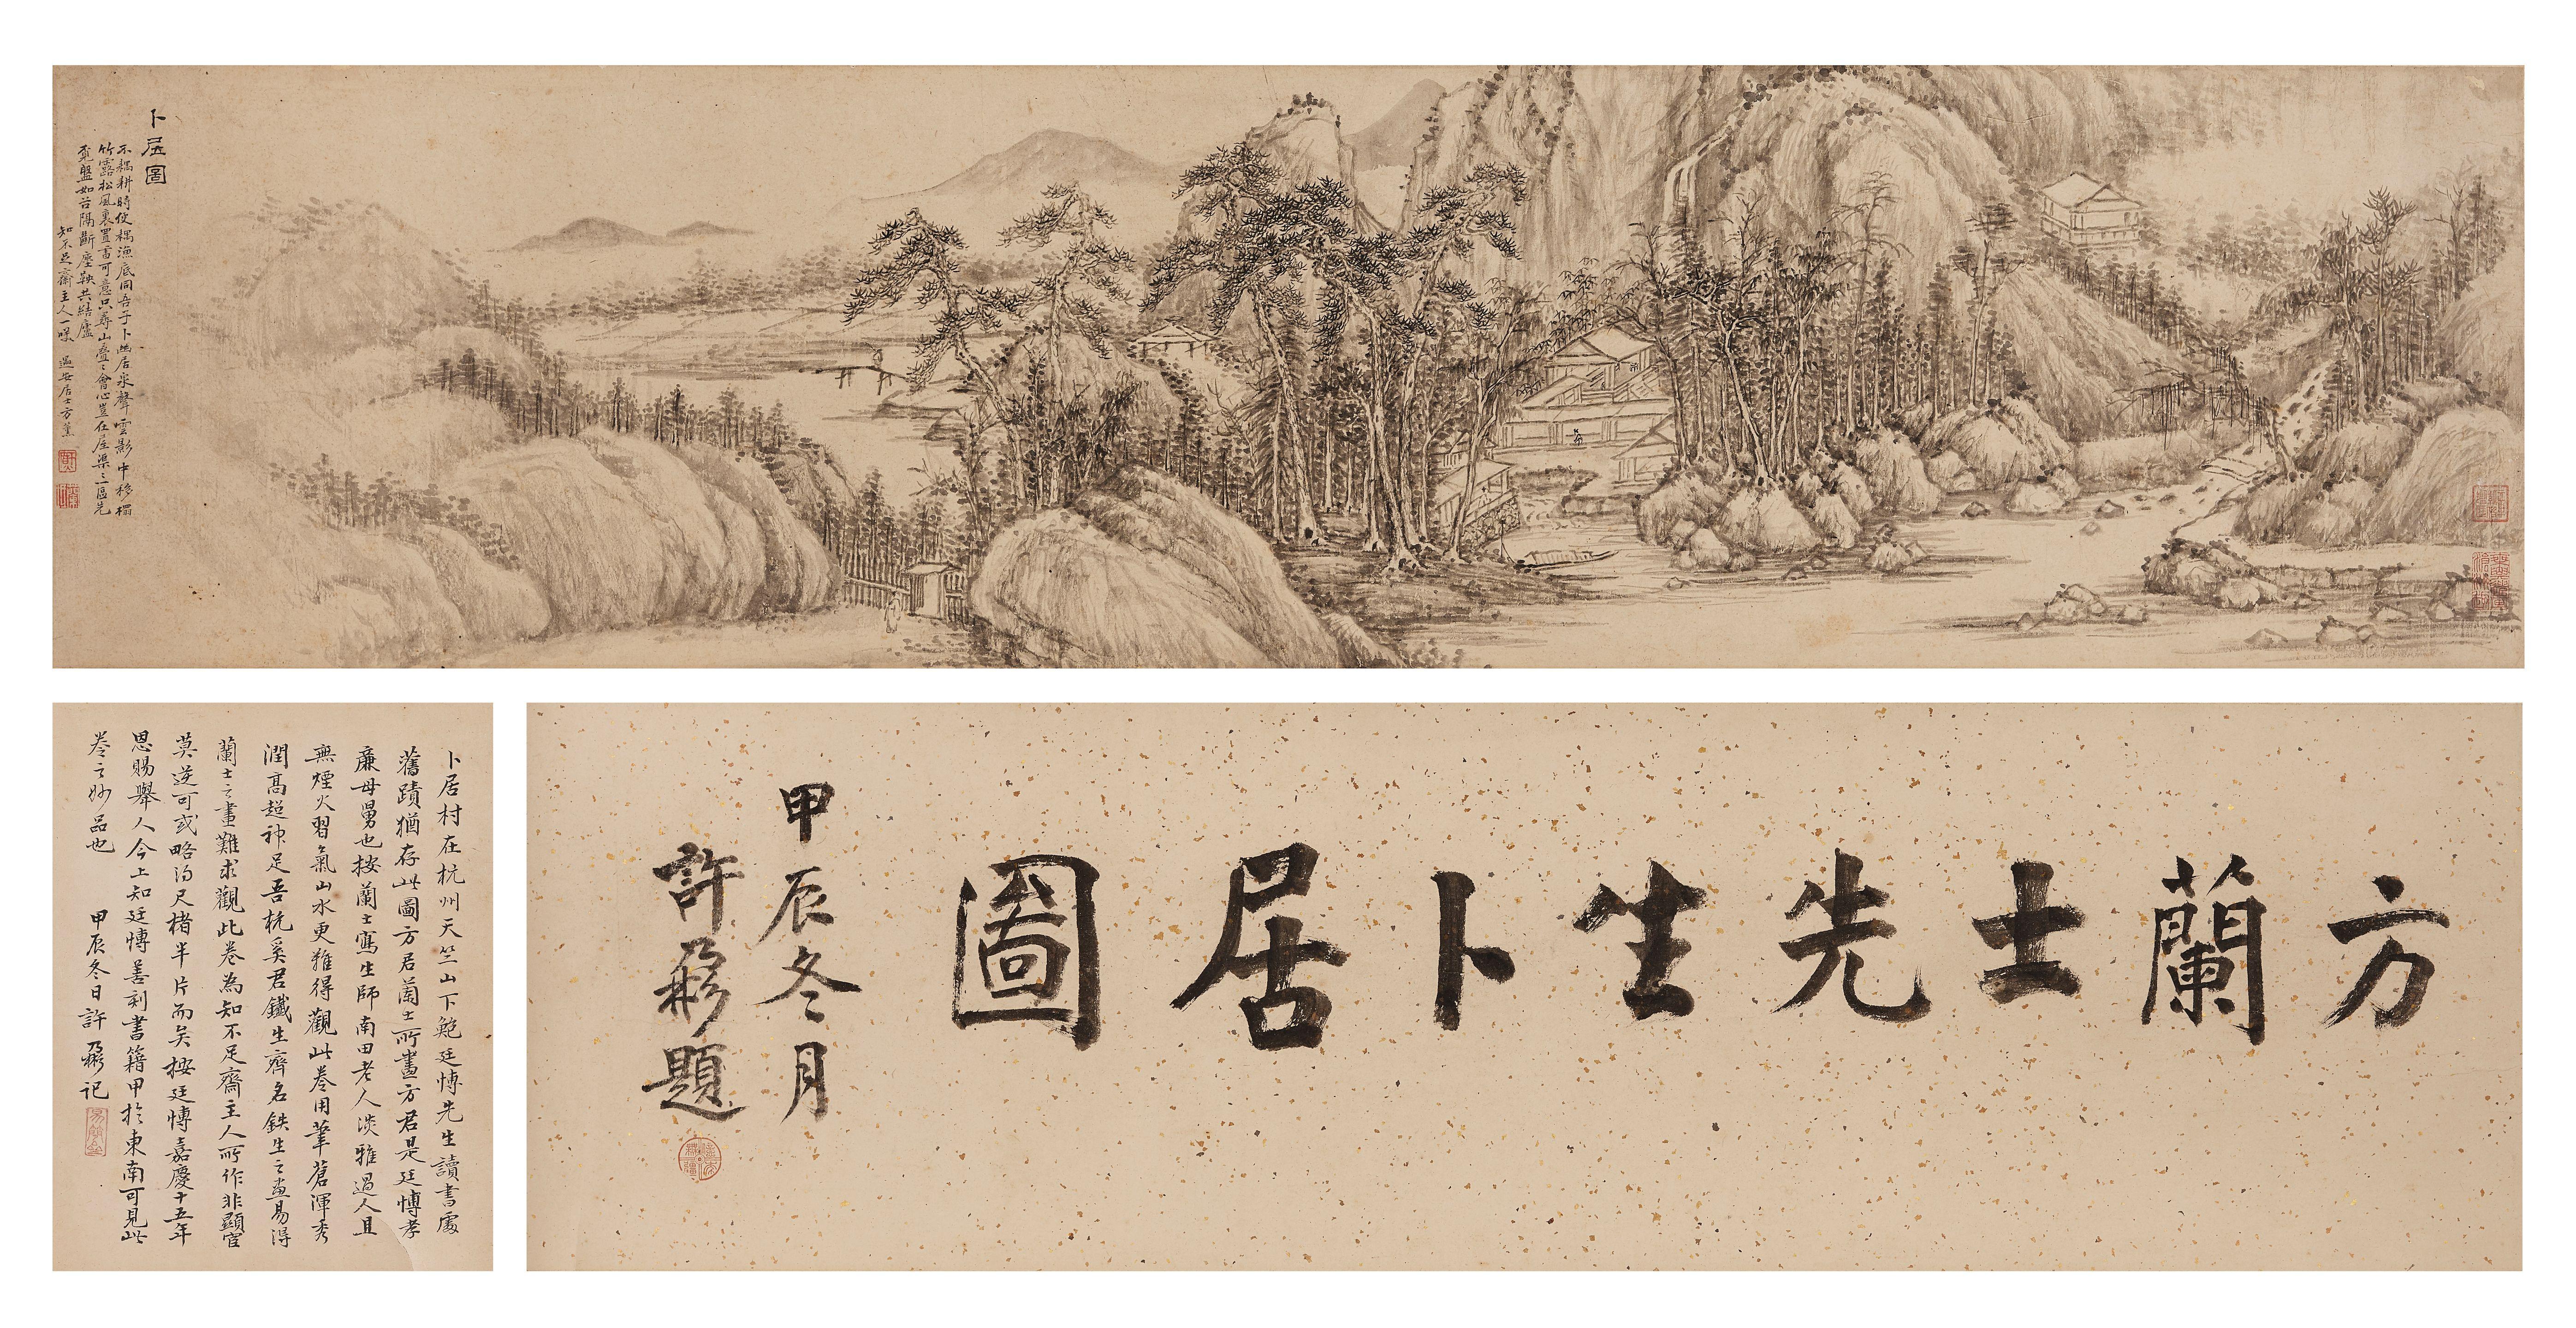 卜居圖
不耦耕時便耦漁底同吾子卜幽居泉聲雲影中移榻
竹露松風裏置書可意只尋山疊疊會心豈在屋渠渠一區先
覓盤如谷隔斷塵鞅共結廬
知不足齋主人一咲 過安居士方薰
方蘭士先生卜居圖
甲辰冬月
許鼐題
卜居村在杭州天竺山下鮑廷博先生讀書處
舊蹟猶存此圖方君蘭士所畫方君是廷博孝
廉母舅也按蘭士寫生師南田老人淡雅過人且
無煙火習氣山水更難得觀此卷用筆蒼渾秀
潤高超神足吾杭奚君鐵生齊名鉄生之畫易得
蘭士之畫難求觀此卷為知不足齋主人所作非顯宦
莫逆可或略得尺楮半片而矣按廷博嘉慶十五年
恩賜舉人今上知廷博善刻書籍甲於東南可見此
卷之妙品也 甲辰冬日許鼐記